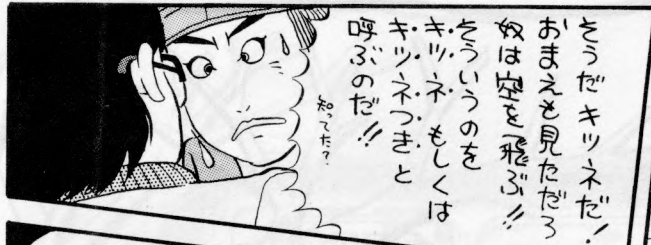 そうだキツネだ!
おまえも見ただろ
奴は空を飛ぶ!!
そういうのを
キツネ もしくは
キツネつきと
呼ぶのだ!!
知ってた?